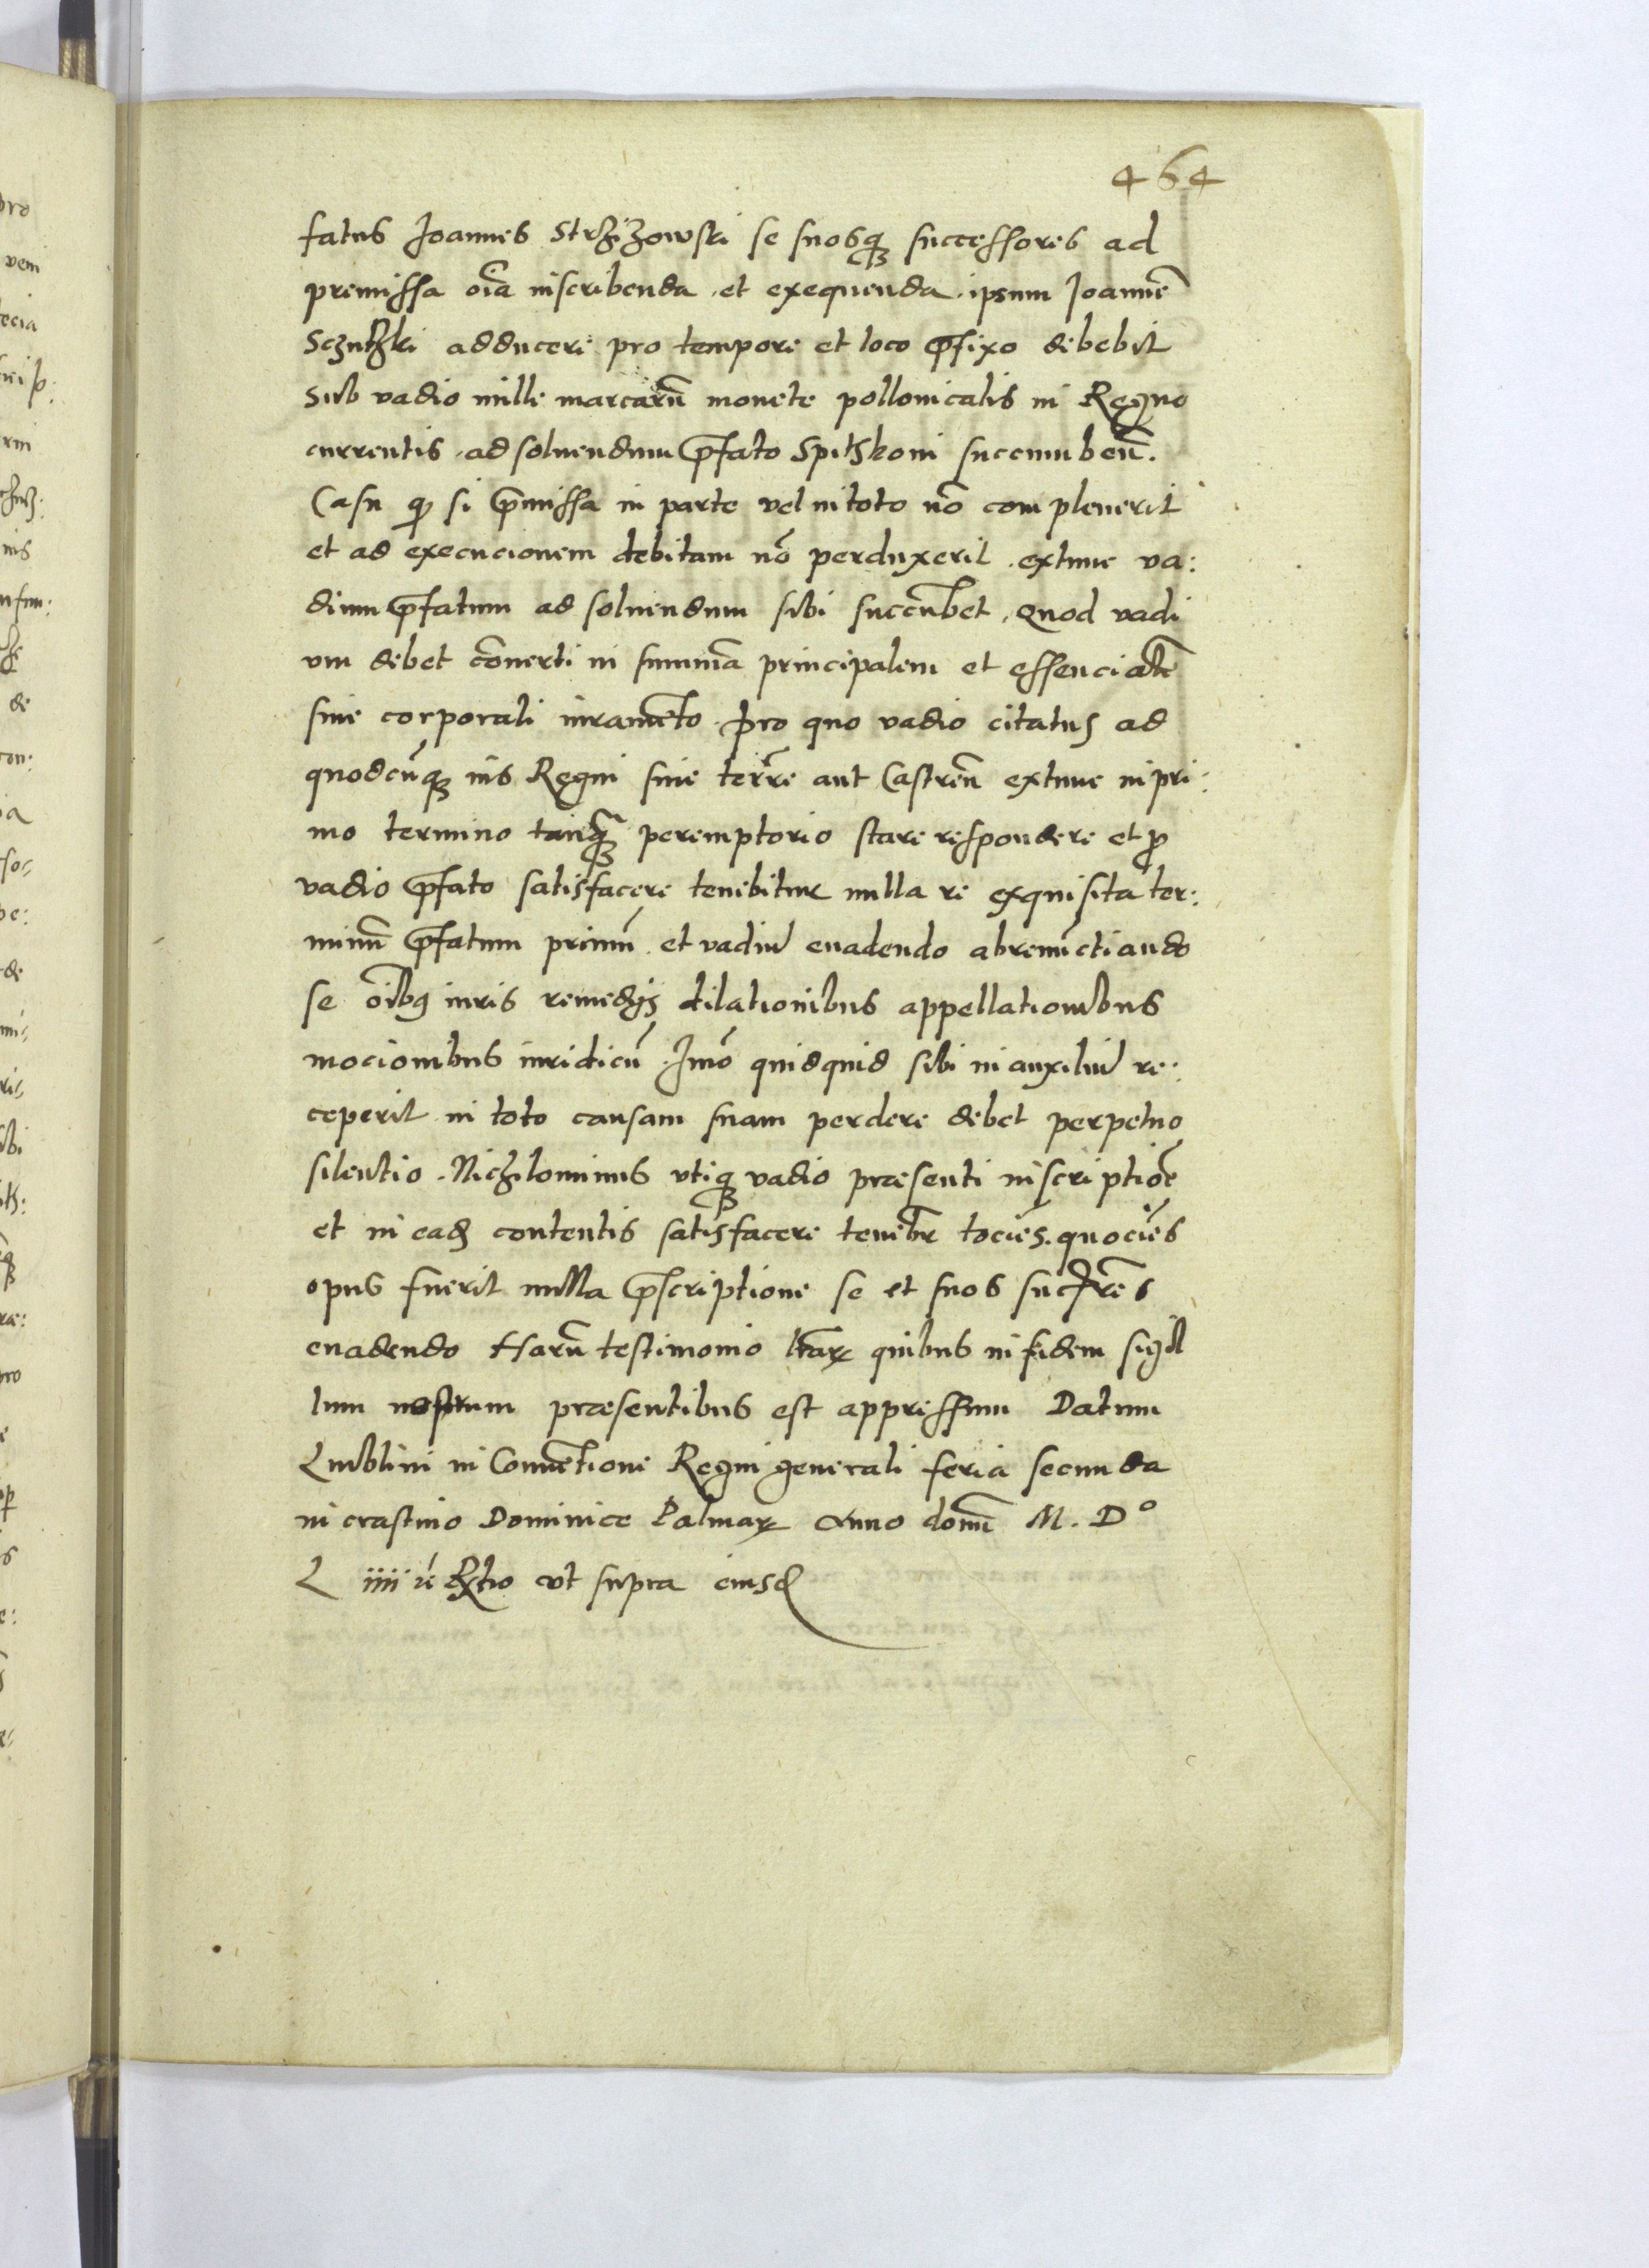 464
fatus Joannes Strzizowski se suosq3 successores ad
premissa oīa inscribenda . et exequenda . ipsum Joannē
adducere pro tempore et loco p̄fixo debebit
sub vadio mille marcarū monete pollonicalis in Regno
currentis . ad soluendum p̄fato Spitzkoni succumbeñ.
Casu quo si p̄missa in parte vel in toto nō compleuerit
et ad execucionem debitam nō perduxerit . extunc va:
dium p̄fatum ad soluendum sibi succūbet . Quod vadi
um debet cōuerti in summā principalem et essencialē
siue corporali iuramēto . Pro quo vadio citatus ad
quodcūq3 ius Regni siue terrē aut Castreñ extunc in pri:
mo termino tanq̄3 peremptorio stare respondere et ꝓ
vadio p̄fato satisfacere tenebitur nulla re exquisita ter:
minū p̄fatum primū . et vadiū euadendo abrenūctiando
se oībꝰ iuris remedijs dilationibus appellationibus
mocionibus iuridicū . Imō quidquid sibi in auxiliū re:
ceperit in toto causam suam perdere debet perpetuo
silentio . Nichilominus vtiq3 vadio præsenti inscriptiōe
et in ead contentis satisfacere tenebr̄ tociēs . quociēs
opus fuerit nulla p̄scriptione se et suos succr̄es
euadendo Harū testimonio lr̄aꝝ quibus in fidem sigil
lum nostrum præsentibus est appressum Datum
Lublini in Conuētione Regni generali feria secunda
in crastino Dominice Palmaꝝ Anno domī M . D°
L iiii ut supra eiusd